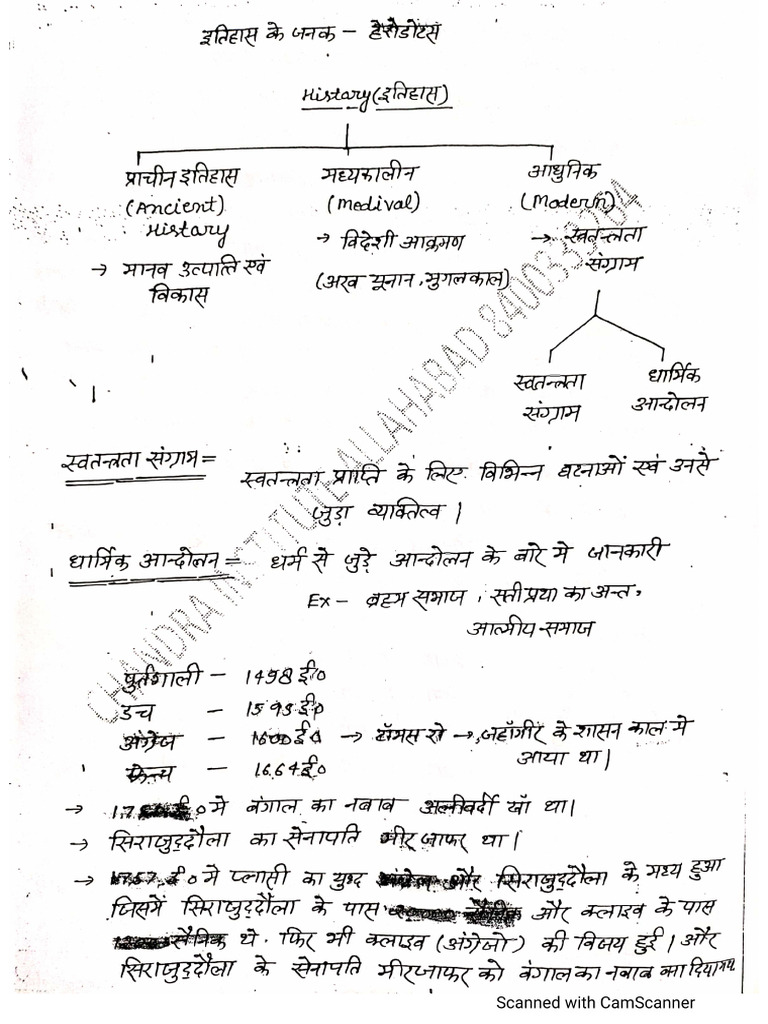 इतिहास के जनक – हेरोडोटस
History (इतिहास)
प्राचीन इतिहास मध्यकालीन आधुनिक
(Ancient) (Medival) (Modern)
History → विदेशी आक्रमण → स्वतन्त्रता
→ मानव उत्पाति एवं (अरब यूनान, मुगलकाल) संग्राम
विकास
स्वतन्त्रता धार्मिक
संग्राम आन्दोलन
स्वतन्त्रता संग्राम = स्वतन्त्रता प्राप्ति के लिए विभिन्न घटनाओं एवं उनसे
जुड़ा व्यक्तित्व |
धार्मिक आन्दोलन = धर्म से जुड़े आन्दोलन के बारे मे जानकारी
Ex – ब्रह्म समाज, सतीप्रथा का अन्त,
आत्मीय-समाज
पुर्तगाली – 1498 ई०
डच – 1595 ई०
अंग्रेज – 1600 ई० → टॉमस रो → जहाँगीर के शासन काल मे
आया था |
फ्रेन्च – 1664 ई०
→ ई० मे बंगाल का नबाब अलीवर्दी खाँ था |
→ सिराजुद्दौला का सेनापति मीर जाफर था |
→ 1757 ई० मे प्लासी का युद्ध और सिराजुद्दौला के मध्य हुआ
जिसमें सिराजुद्दौला के पास सैनिक और क्लाइव के पास
सैनिक थे. फिर भी क्लाइव (अंग्रेजो) की विजय हुई | और
सिराजुद्दौला के सेनापति मीरजाफर को बंगाल का नबाब बना दिया गया
CHANDRA INSTITUTE ALLAHABAD 8400333264
Scanned with CamScanner